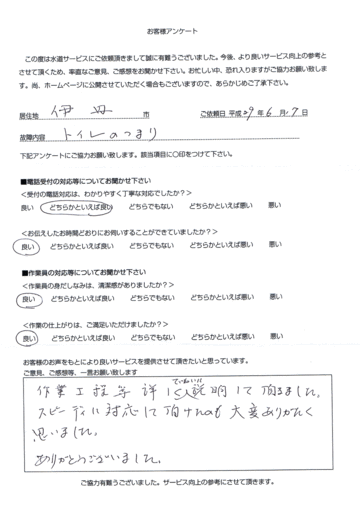 お客様アンケート
この度は水道サービスにご依頼頂きまして誠に有難うございました。今後、より良いサービス向上の参考と
させて頂くため、率直なご意見、ご感想をお聞かせ下さい。お忙しい中、恐れ入りますがご協力お願い致しま
す。尚、ホームページに公開させていただく場合もございますので、あらかじめご了承下さい。
居住地 伊丹 市 ご依頼日 平成29年6月17日
故障内容 トイレのつまり
下記アンケートにご協力お願い致します。該当項目に〇印をつけて下さい。
■電話受付の対応等についてお聞かせ下さい
<受付の電話対応は、わかりやすく丁寧な対応でしたか?>
良い どちらかといえば良い どちらでもない どちらかといえば悪い 悪い
<お伝えしたお時間どおりにお伺いすることができていましたか?>
良い どちらかといえば良い どちらでもない どちらかといえば悪い 悪い
■作業員の対応等についてお聞かせ下さい
<作業員の身だしなみは、清潔感がありましたか?>
良い どちらかといえば良い どちらでもない どちらかといえば悪い 悪い
<作業の仕上がりは、ご満足いただけましたか?>
良い どちらかといえば良い どちらでもない どちらかといえば悪い 悪い
お客様のお声をもとにより良いサービスを提供させて頂きたいと思っています。
ご意見、ご感想等、一言お願い致します
ていねいに
作業工程等詳しく説明して頂きました。
スピーディに対応して頂けたのも大変ありがたく
思いました。
ありがとうございました。
ご協力有難うございました。サービス向上の参考にさせて頂きます。